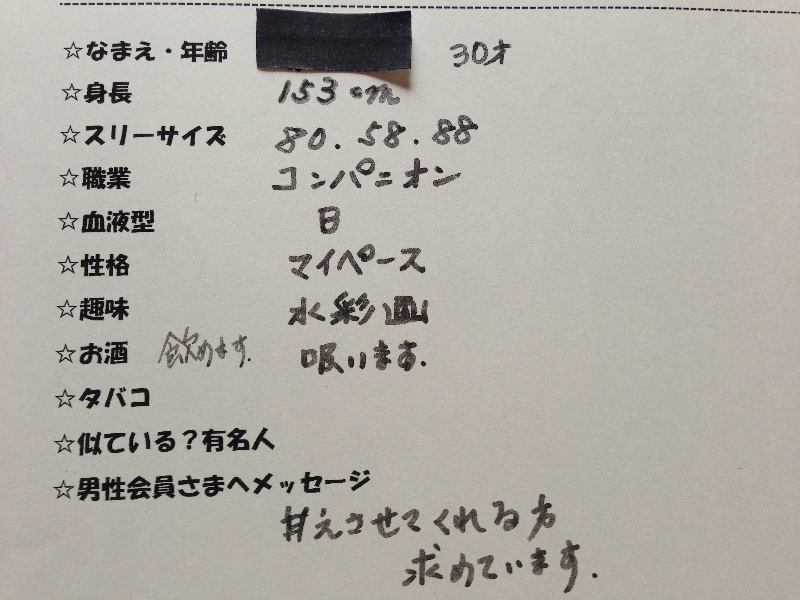 ☆なまえ・年齢 30才
☆身長 153cm
☆スリーサイズ 80.58.88
☆職業 コンパニオン
☆血液型 B
☆性格 マイペース
☆趣味 水彩画
☆お酒 飲めます. 吸います.
☆タバコ
☆似ている?有名人
☆男性会員さまへメッセージ
甘えさせてくれる方
求めています.